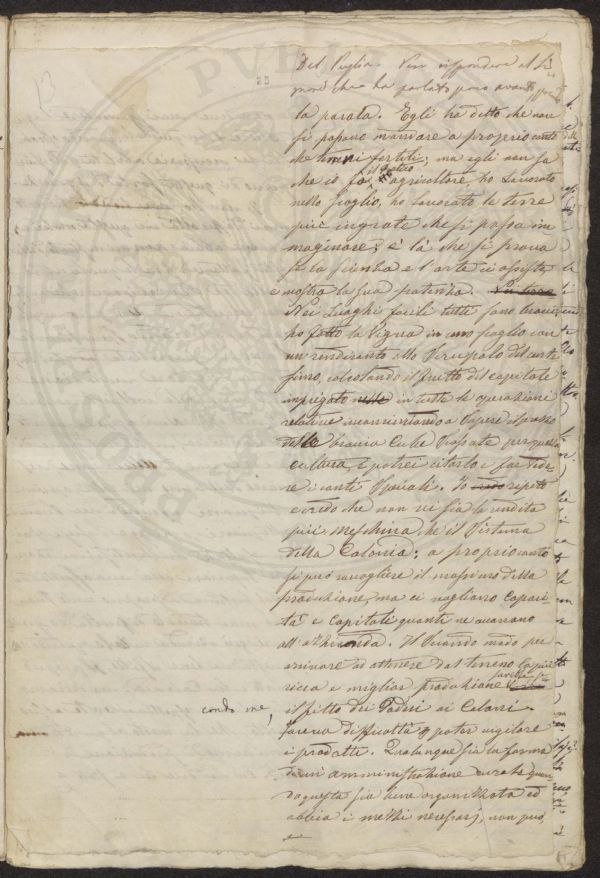 13
25
Del Puglia. Per rispondere al Si
gnore che ha parlato poco avanti
la parola. Egli ha detto che non
si possono mandare a proprio conto
che terreni fertili; ma egli non sa
che io fo il
agricoltore, ho lavorato
nello scoglio, ho lavorato le terre
più ingrate che si possa im
maginare; è là che si prova
se la scienza e l'arte ci assiste,
e mostra la sua potenza.
Nei luoghi facili tutti sono bravi;
ho fatto la vigna in uno scoglio con
un rendiconto allo scrupolo del cente
simo, calcolando il frutto del capitale
impiegato in tutte le operazioni
relative incominciando a sapere il passo
delle braccia cube scassate per quella
cultura, e potrei citarlo e far vede
re i conti speciali. Io ripeto
e credo che non vi sia la rendita
più meschina che il sistema
della Colonia; a proprio conto
si può raccogliere il massimo della
produzione, ma ci vogliono capaci
tà e capitali quanti ne avanzano
all'azienda. Il secondo modo per
arrivare ad ottenere dal terreno la più
ricca e miglior produzione sarebbe
secondo me,
il fitto dei Poderi ai Coloni.
Aveva difficoltà a poter vigilare
i prodotti. Qualunque sia la forma
di un amministrazione rurale quan
do questa sia bene organizzata ed
abbia i mezzi necessari, non può